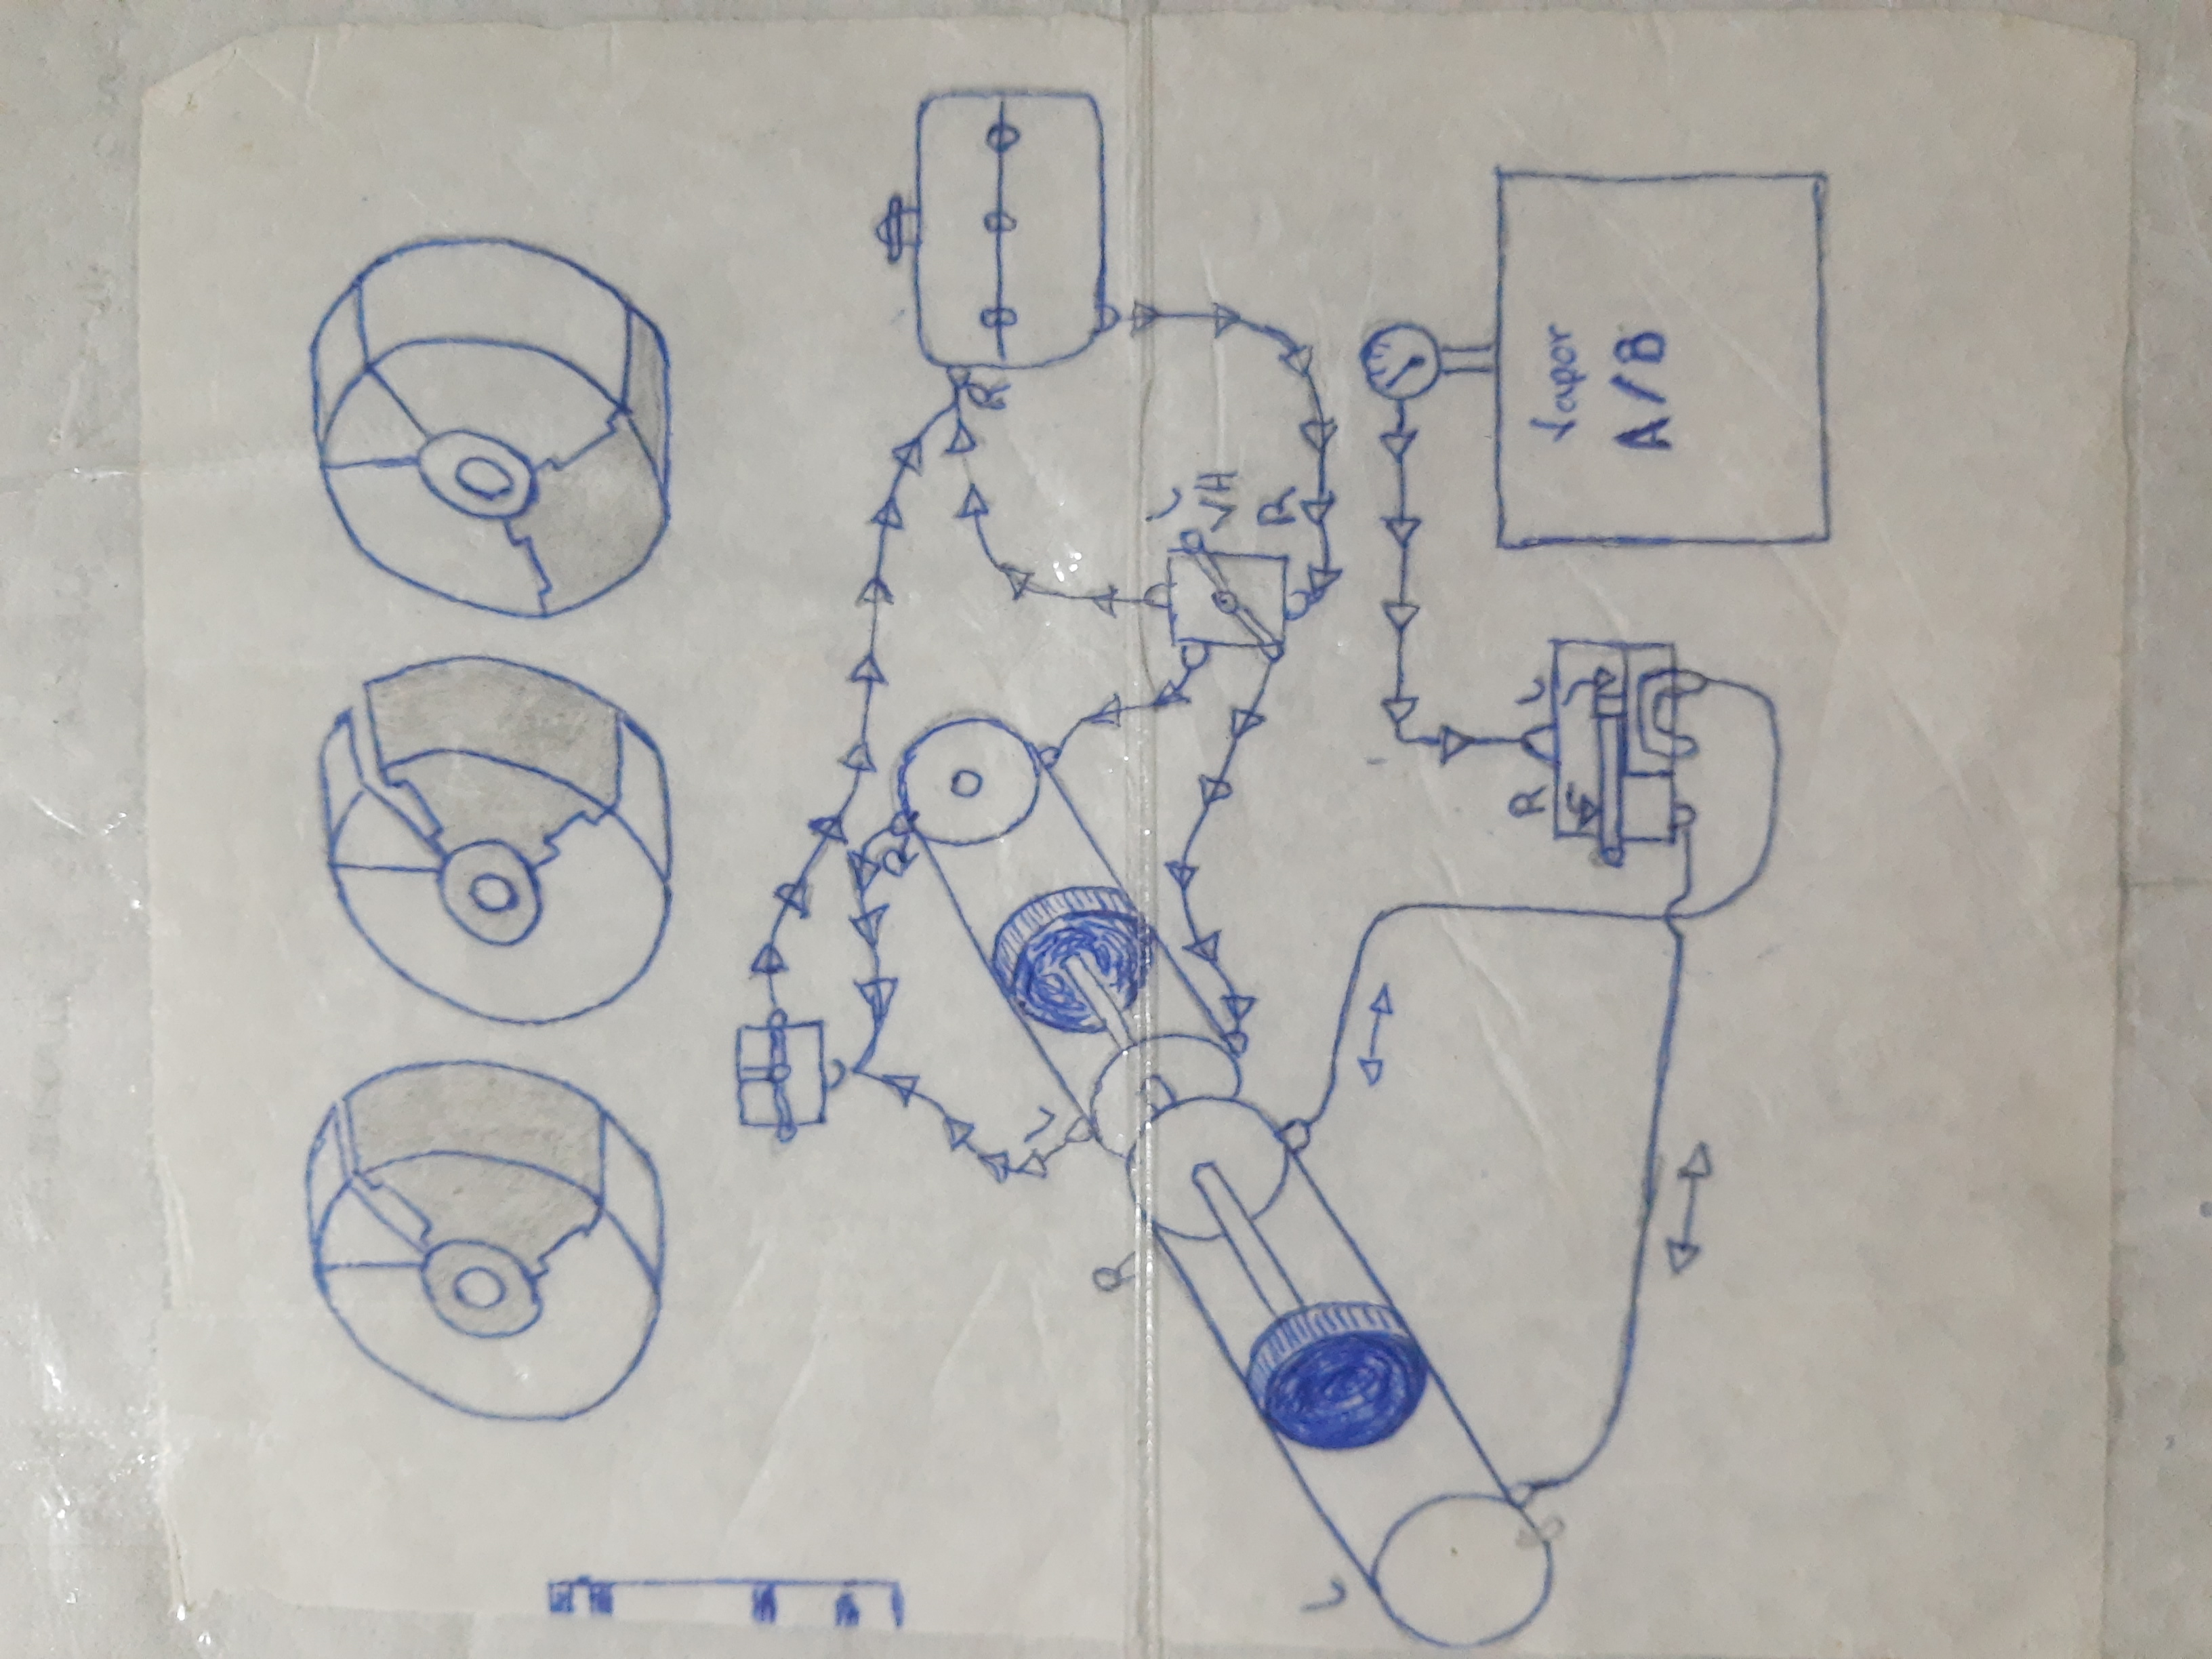 R
L
R
R
L
VH
R
L
R L
Vapor
A/B